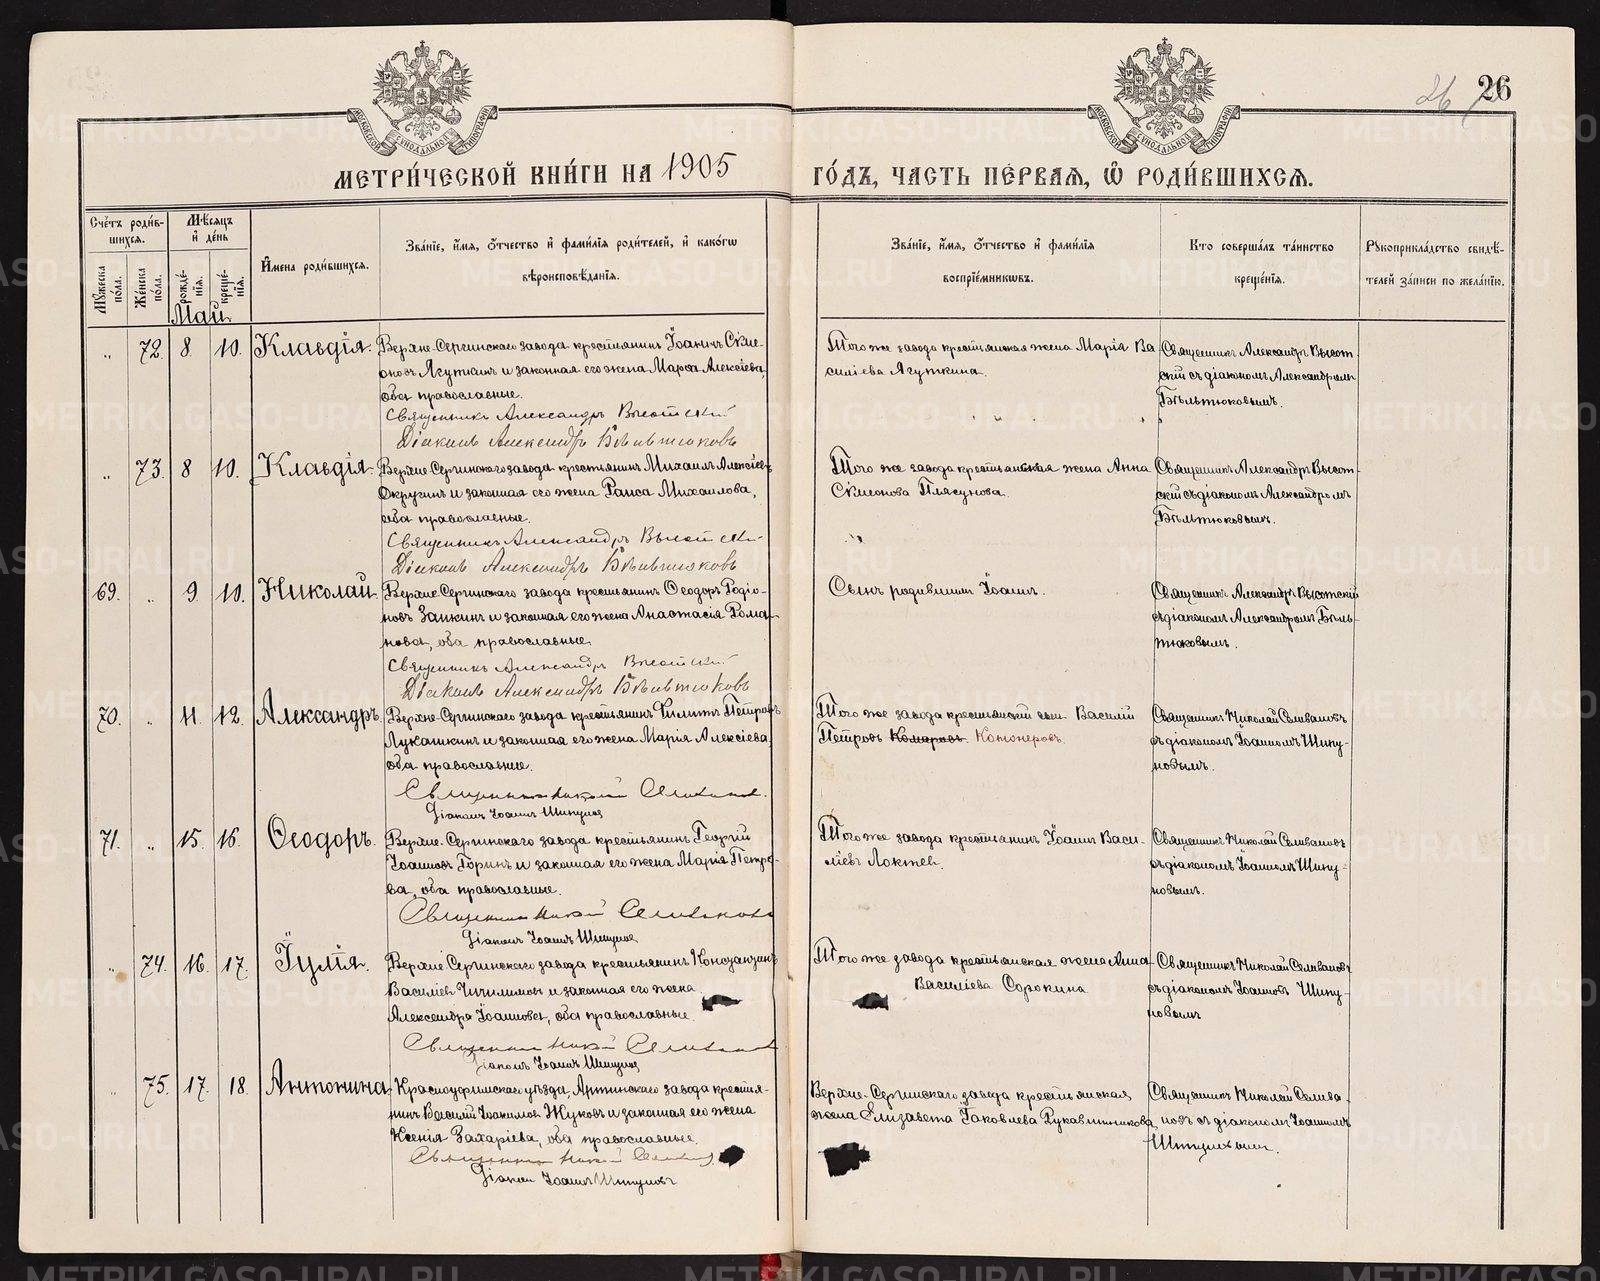 26
26
МОСКОВСКОЙ СѴНОДАЛЬНОЙ ТИПОГРАФІИ
МОСКОВСКОЙ СѴНОДАЛЬНОЙ ТИПОГРАФІИ
МЕТРИ́ЧЕСКОЙ КНИ́ГИ НА 1905
ГО́ДЪ, ЧАСТЬ ПЕ́РВАЯ, Ѽ РОДИ́ВШИХСЯ.
Сче́тъ роди́в-
шихся.
Му́жеска по́ла.
Же́нска по́ла.
Мѣ́сяцъ
и҆ де́нь
рожде́-
нїя.
креще́-
нїя.
И҆мена роди́вшихся.
Зва́нїе, и҆́мя, о҆́тчество и҆ фами́лїя роди́телей, и҆ како́гѡ
вѣроисповѣ́данїя.
Зва́нїе, и҆́мя, о҆́тчество и҆ фами́лїя
воспрїе́мникѡвъ.
Кто соверша́лъ та́инство
креще́нїя.
Рꙋкоприкла́дство свидѣ́-
телей за́писи по жела́нїю.
Май
„ 72. 8. 10. Клавдія.
Верхне-Сергинскаго завода крестьянинъ Іоаннъ Сѵме-
оновъ Ягуткинъ и законная его жена Марѳа Алексіева,
оба православные.
Священникъ Александръ Высотскій
Діаконъ Александръ Бѣльтюковъ
Того же завода крестьянская жена Марія Ва
силіева Ягуткина.
Священникъ Александръ Высот-
скій съ діакономъ Александромъ
Бѣльтюковымъ.
„ 73. 8 10. Клавдія.
Верхне-Сергинскаго завода крестьянинъ Михаилъ Алексіевъ
и законная его жена Раиса Михаилова,
оба православные.
Священникъ Александръ Высотскій
Діаконъ Александръ Бѣльтюковъ
Того же завода крестьянская жена Анна
Сѵмеонова Плясунова.
Священникъ Александръ Высот-
скій съ діакономъ Александромъ
Бѣльтюковымъ.
69. „ 9. 10. Николай.
Верхне-Сергинскаго завода крестьянинъ Ѳеодоръ Родіо-
новъ Заикинъ и законная его жена Анастасія Рома-
нова, оба православные.
Священникъ Александръ Высотскій
Діаконъ Александръ Бѣльтюковъ
Сынъ родившій Іоаннъ.
Священникъ Александръ Высотскій
съ діакономъ Александромъ Бѣль-
тюковымъ.
70. „ 11. 12. Александръ.
Верхне-Сергинскаго завода крестьянинъ Филиппъ Петровъ
Лукашкинъ и законная его жена Марія Алексіева,
оба православные.
Священникъ Николай Селивановъ.
Діаконъ Іоаннъ Шипуновъ
Того же завода крестьянскій сынъ Василій
Петровъ Комаровъ. Кононеровъ.
Священникъ Николай Селивановъ
съ діакономъ Іоанномъ Шипу-
новымъ.
71. „ 15. 16. Ѳеодоръ.
Верхне-Сергинскаго завода крестьянинъ Георгій
Іоанновъ Горинъ и законная его жена Марія Петро-
ва, оба православные.
Священникъ Николай Селивановъ
Діаконъ Іоаннъ Шипуновъ
Того же завода крестьянинъ Іоаннъ Васи-
ліевъ Локтев.
Священникъ Николай Селивановъ
съ діакономъ Іоанномъ Шипу-
новымъ.
„ 74. 16. 17. Іулія.
Верхне-Сергинскаго завода крестьянинъ Константинъ
Василіев и законная его жена
Александра Іоаннова, оба православные.
Священникъ Николай Селивановъ
Діаконъ Іоаннъ Шипуновъ
Того же завода крестьянская жена Анна
Василіева Сорокина
Священникъ Николай Селивановъ
съ діакономъ Іоанномъ Шипу-
новымъ
„ 75. 17. 18. Антонина
Красноуфимскаго уѣзда, Артинскаго завода крестья-
нинъ Василій Іоакимовъ Жуковъ и законная его жена
Ксенія Захаріева, оба православные.
Священникъ Николай Селивановъ
Діаконъ Іоаннъ Шипуновъ
Верхне-Сергинскаго завода крестьянская
жена Елизавета Іаковлева Рукавишникова
Священникъ Николай Селива-
новъ съ діакономъ Іоанномъ
Шипуновымъ.
METRIKI.GASO-URAL.RU